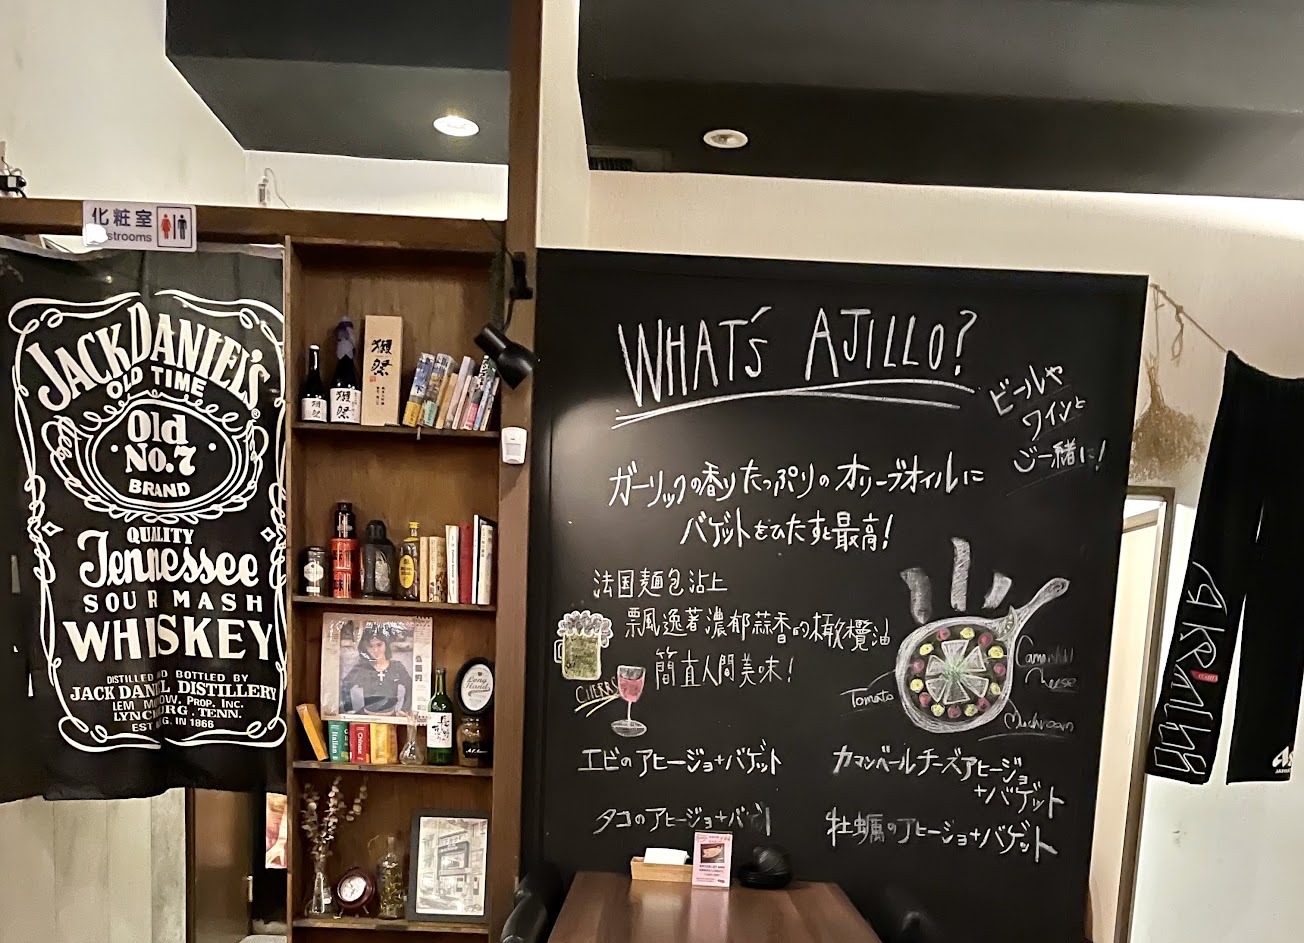 化粧室
JACK DANIEL'S
OLD TIME
Old
No.7
BRAND
QUALITY
Tennessee
SOUR MASH
WHISKEY
DISTILLED AND BOTTLED BY
JACK DANIEL DISTILLERY
LEM MOTLOW, PROP. INC.
LYNCHBURG, TENN.
EST. REG. IN 1866
獺祭
獺祭
WHAT'S AJILLO?
ビールや
ワインと
ご一緒に!
ガーリックの香りたっぷりのオリーブオイルに
バゲットをひたすと最高!
法国麵包沾上
飄逸著濃郁蒜香的橄欖油
簡直人間美味!
CHEERS
Tomato
Mushroom
エビのアヒージョ+バゲット
タコのアヒージョ+バ
カマンベールチーズアヒージョ
+バゲット
牡蠣のアヒージョ+バゲット